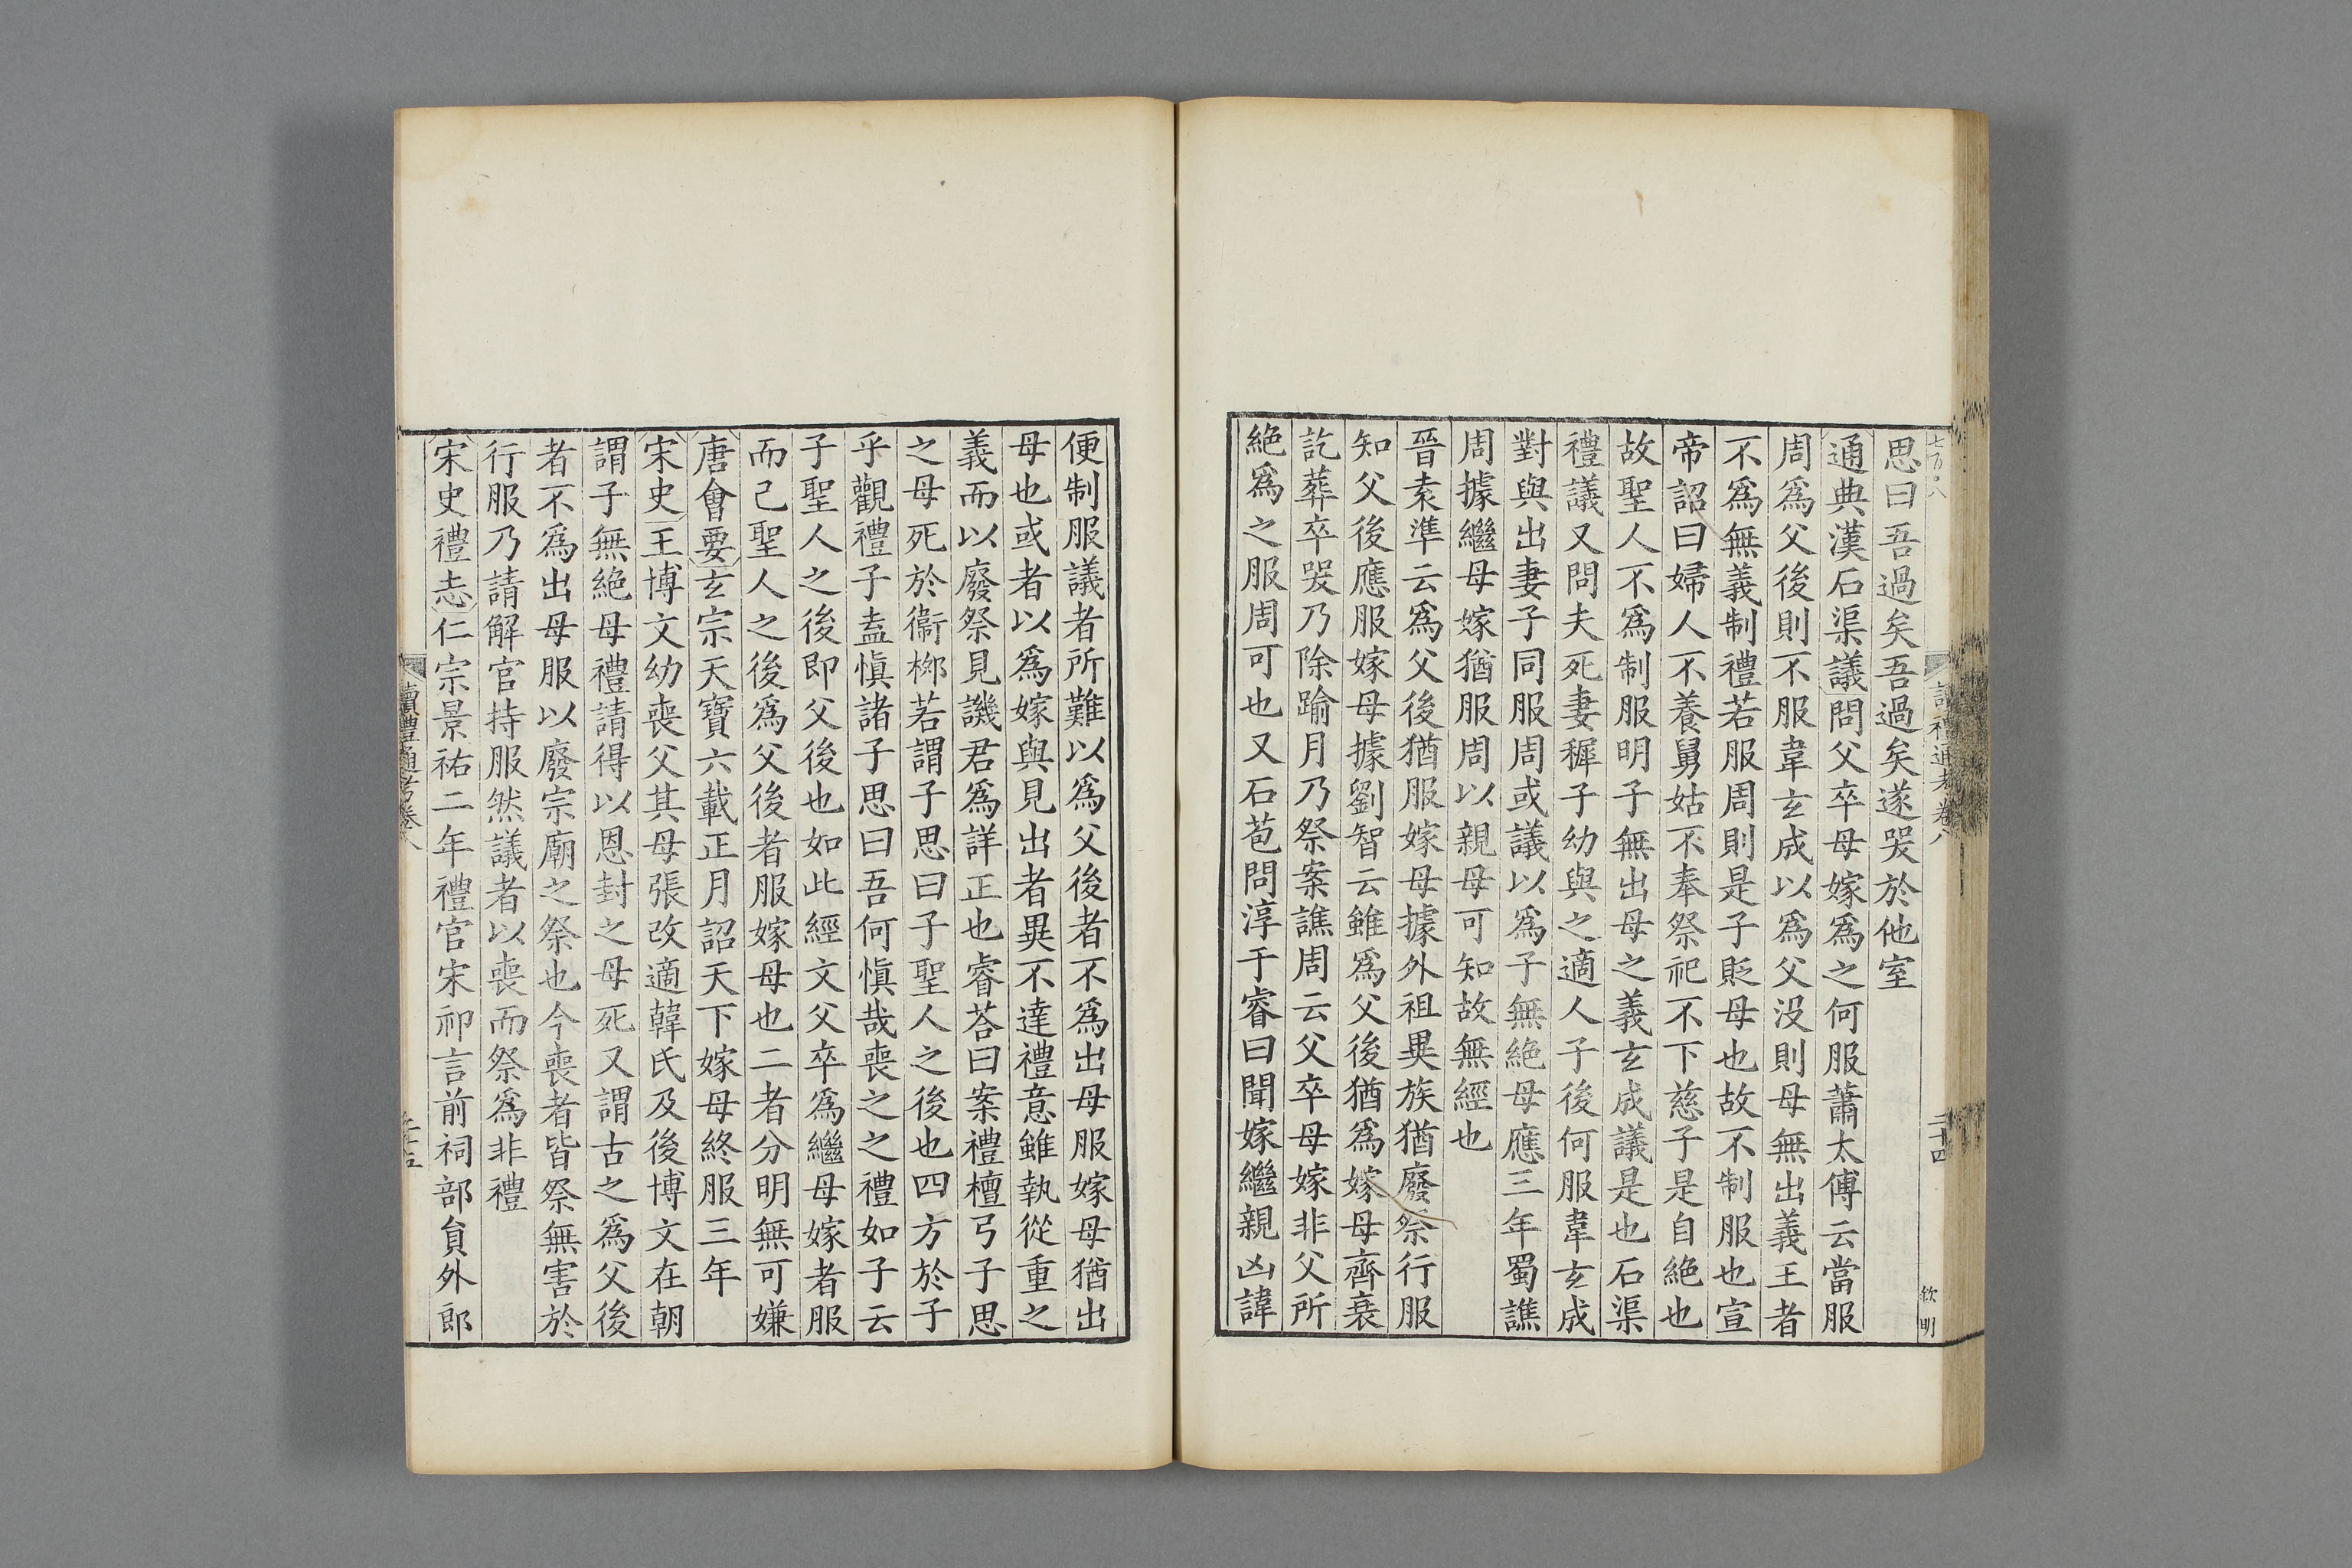 思曰吾過矣吾過矣遂哭於他室
通典漢石渠議問父卒母嫁爲之何服蕭太傅云當服
周爲父後則不服韋玄成以爲父没則母無出義王者
不爲無義制禮若服周則是子貶母也故不制服也宣
帝詔曰婦人不養舅姑不奉祭祀不下慈子是自絶也
故聖人不爲制服明子無出母之義玄成議是也石渠
禮議又問夫死妻穉子幼與之適人子後何服韋玄成
對與出妻子同服周或議以爲子無絶母應三年蜀譙
周據繼母嫁猶服周以親母可知故無經也
晉袁準云爲父後猶服嫁母據外祖異族猶廢祭行服
知父後應服嫁母據劉智云雖爲父後猶爲嫁母齊衰
訖葬卒哭乃除踰月乃祭案譙周云父卒母嫁非父所
絶爲之服周可也又石苞問淳于睿曰聞嫁繼親凶諱
便制服議者所難以爲父後者不爲出母服嫁母猶出
母也或者以爲嫁與見出者異不達禮意雖執從重之
義而以廢祭見譏君爲詳正也睿荅曰案禮檀弓子思
之母死於衞栁若謂子思曰子聖人之後也四方於子
乎觀禮子盍慎諸子思曰吾何慎哉喪之之禮如子云
子聖人之後即父後也如此經文父卒爲繼母嫁者服
而己聖人之後爲父後者服嫁母也二者分明無可嫌
唐會要玄宗天寶六載正月詔天下嫁母終服三年
宋史王博文幼喪父其母張改適韓氏及後博文在朝
謂子無絶母禮請得以恩封之母死又謂古之爲父後
者不爲出母服以廢宗廟之祭也今喪者皆祭無害於
行服乃請解官持服然議者以喪而祭爲非禮
宋史禮志仁宗景祐二年禮官宋祁言前祠部貟外郎
讀禮通考卷八
二十四
欽明